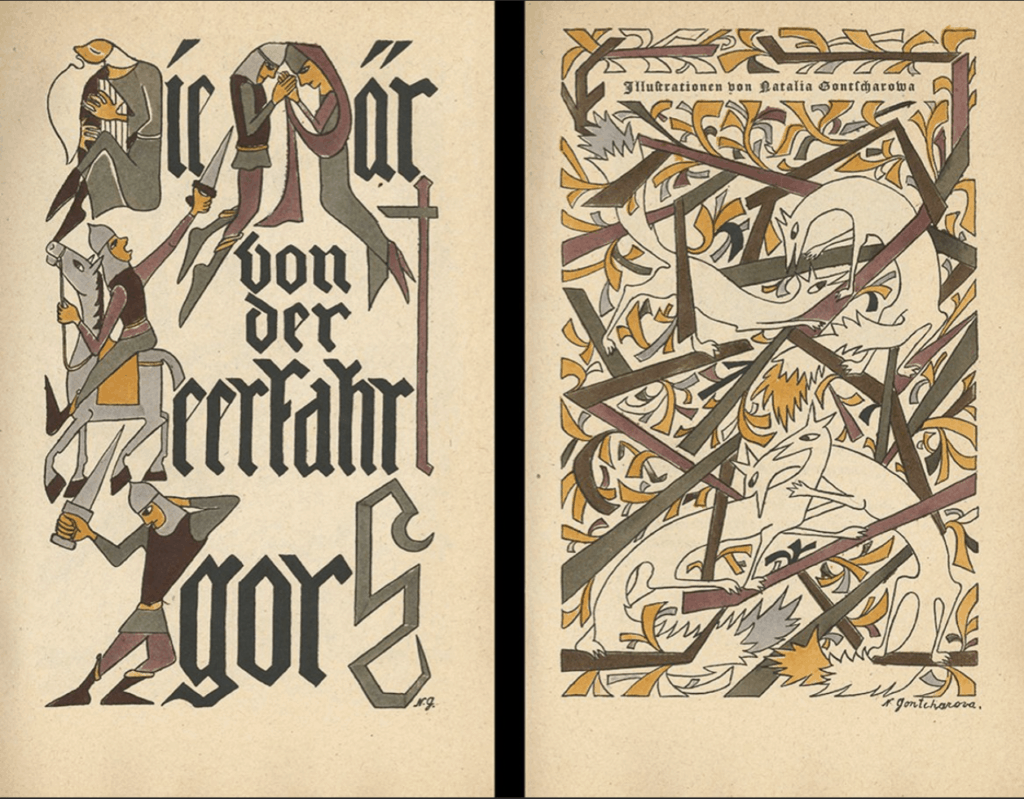 Die Mär
von
der
Heerfahrt
Igors
N.G.
Illustrationen von Natalia Gontscharowa
N. Gontcharova.